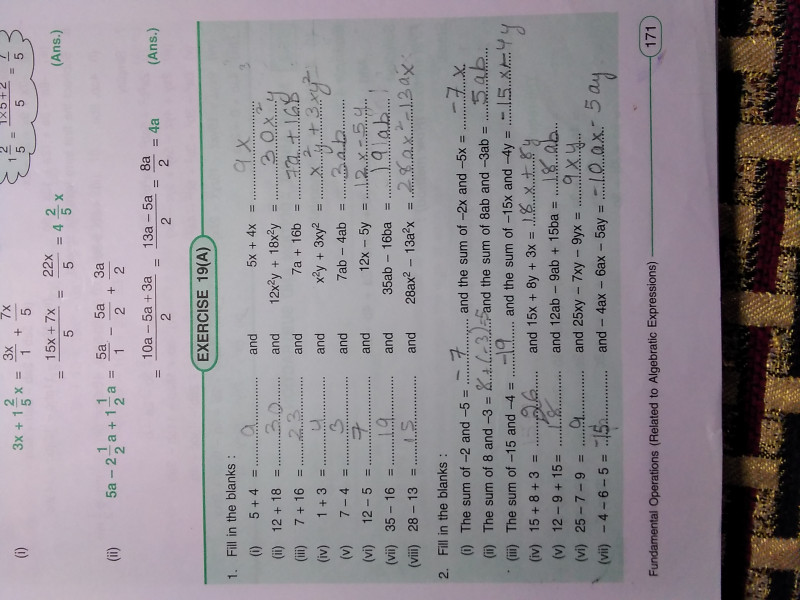 1 2/5 = (1×5+2)/5 = 7/5
(i) 3x + 1 2/5 x = 3x/1 + 7x/5
= (15x + 7x)/5 = 22x/5 = 4 2/5 x (Ans.)
(ii) 5a – 2 1/2 a + 1 1/2 a = 5a/1 – 5a/2 + 3a/2
= (10a – 5a + 3a)/2 = (13a – 5a)/2 = 8a/2 = 4a (Ans.)
EXERCISE 19(A)
1. Fill in the blanks :
(i) 5 + 4 = 9 and 5x + 4x = 9x
(ii) 12 + 18 = 30 and 12x²y + 18x²y = 30x²y
(iii) 7 + 16 = 23 and 7a + 16b = 7a + 16b
(iv) 1 + 3 = 4 and x²y + 3xy² = x²y + 3xy²
(v) 7 – 4 = 3 and 7ab – 4ab = 3ab
(vi) 12 – 5 = 7 and 12x – 5y = 12x - 5y
(vii) 35 – 16 = 19 and 35ab – 16ba = 19ab
(viii) 28 – 13 = 15 and 28ax² – 13a²x = 28ax² - 13a²x
2. Fill in the blanks :
(i) The sum of –2 and –5 = -7 and the sum of –2x and –5x = -7x
(ii) The sum of 8 and –3 = 8+(-3)=5 and the sum of 8ab and –3ab = 5ab
(iii) The sum of –15 and –4 = -19 and the sum of –15x and –4y = -15x - 4y
(iv) 15 + 8 + 3 = 26 and 15x + 8y + 3x = 18x + 8y
(v) 12 – 9 + 15 = 18 and 12ab – 9ab + 15ba = 18ab
(vi) 25 – 7 – 9 = 9 and 25xy – 7xy – 9yx = 9xy
(vii) – 4 – 6 – 5 = -15 and – 4ax – 6ax – 5ay = -10ax - 5ay
Fundamental Operations (Related to Algebraic Expressions) 171